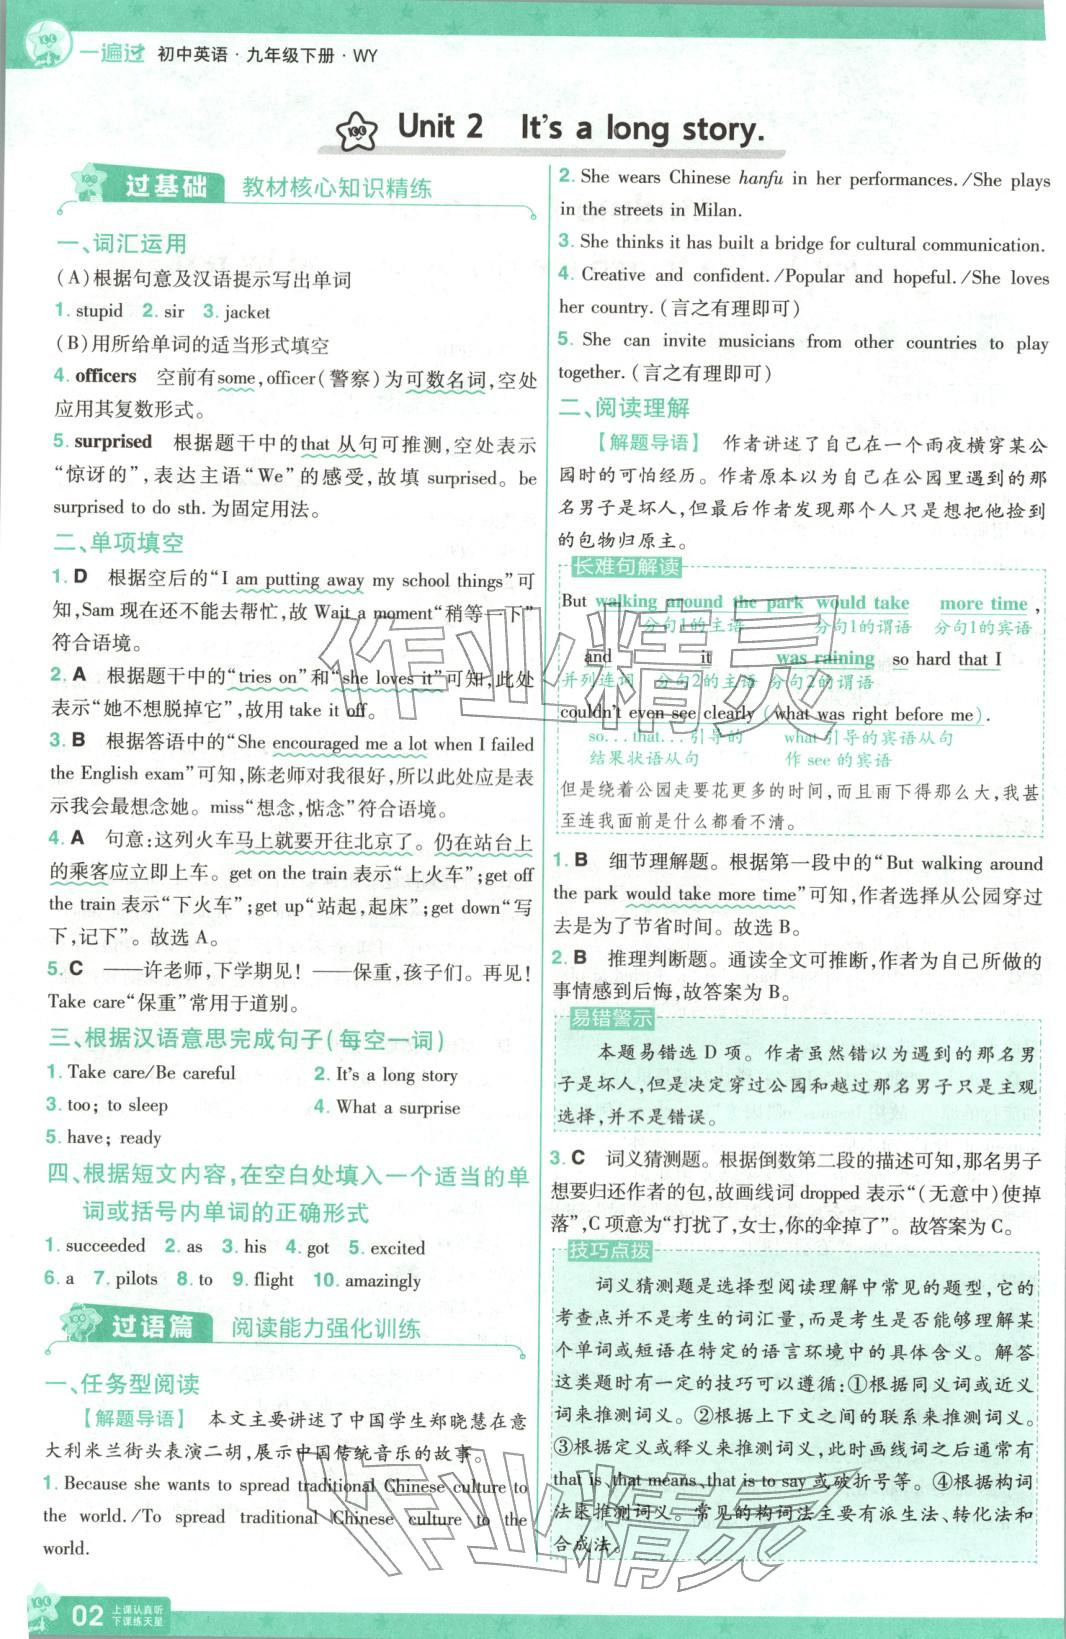 一遍过 初中英语·九年级下册·WY
Unit 2 It's a long story.
过基础 教材核心知识精练
一、词汇运用
(A)根据句意及汉语提示写出单词
1. stupid 2. sir 3. jacket
(B)用所给单词的适当形式填空
4. officers 空前有some,officer(警察)为可数名词,空处
应用其复数形式。
5. surprised 根据题干中的that 从句可推测,空处表示
“惊讶的”,表达主语“We”的感受,故填 surprised。be
surprised to do sth.为固定用法。
二、单项填空
1. D 根据空后的“I am putting away my school things”可
知,Sam 现在还不能去帮忙,故 Wait a moment“稍等一下”
符合语境。
2. A 根据题干中的“tries on”和“she loves it”可知,此处
表示“她不想脱掉它”,故用 take it off。
3. B 根据答语中的“She encouraged me a lot when I failed
the English exam”可知,陈老师对我很好,所以此处应是表
示我会最想念她。miss“想念,惦念”符合语境。
4. A 句意:这列火车马上就要开往北京了。仍在站台上
的乘客应立即上车。get on the train 表示“上火车”;get off
the train 表示“下火车”;get up“站起,起床”;get down“写
下,记下”。故选 A。
5. C ——许老师,下学期见!——保重,孩子们。再见!
Take care“保重”常用于道别。
三、根据汉语意思完成句子(每空一词)
1. Take care/Be careful 2. It's a long story
3. too; to sleep 4. What a surprise
5. have; ready
四、根据短文内容,在空白处填入一个适当的单
词或括号内单词的正确形式
1. succeeded 2. as 3. his 4. got 5. excited
6. a 7. pilots 8. to 9. flight 10. amazingly
过语篇 阅读能力强化训练
一、任务型阅读
【解题导语】 本文主要讲述了中国学生郑晓慧在意
大利米兰街头表演二胡,展示中国传统音乐的故事。
1. Because she wants to spread traditional Chinese culture to
the world./To spread traditional Chinese culture to the
world.
2. She wears Chinese hanfu in her performances./She plays
in the streets in Milan.
3. She thinks it has built a bridge for cultural communication.
4. Creative and confident./Popular and hopeful./She loves
her country.(言之有理即可)
5. She can invite musicians from other countries to play
together.(言之有理即可)
二、阅读理解
【解题导语】 作者讲述了自己在一个雨夜横穿某公
园时的可怕经历。作者原本以为自己在公园里遇到的那
名男子是坏人,但最后作者发现那个人只是想把他捡到
的包物归原主。
长难句解读
But walking around the park would take more time,
分句1的主语 分句1的谓语 分句1的宾语
and it was raining so hard that I
并列连词 分句2的主语 分句2的谓语
couldn't even see clearly (what was right before me).
so...that...引导的 what 引导的宾语从句
结果状语从句 作 see 的宾语
但是绕着公园走要花更多的时间,而且雨下得那么大,我甚
至连我面前是什么都看不清。
1. B 细节理解题。根据第一段中的“But walking around
the park would take more time”可知,作者选择从公园穿过
去是为了节省时间。故选 B。
2. B 推理判断题。通读全文可推断,作者为自己所做的
事情感到后悔,故答案为 B。
易错警示
本题易错选 D 项。作者虽然错以为遇到的那名男
子是坏人,但是决定穿过公园和越过那名男子只是主观
选择,并不是错误。
3. C 词义猜测题。根据倒数第二段的描述可知,那名男子
想要归还作者的包,故画线词 dropped 表示“(无意中)使掉
落”,C 项意为“打扰了,女士,你的伞掉了”。故答案为 C。
技巧点拨
词义猜测题是选择型阅读理解中常见的题型,它的
考查点并不是考生的词汇量,而是考生是否能够理解某
个单词或短语在特定的语言环境中的具体含义。解答
这类题时有一定的技巧可以遵循:①根据同义词或近义
词来推测词义。②根据上下文之间的联系来推测词义。
③根据定义或释义来推测词义,此时画线词之后通常有
that is, that means, that is to say 或破折号等。④根据构词
法来推测词义。常见的构词法主要有派生法、转化法和
合成法。
作业精灵
作业精灵
02 上课认真听
下课练天星